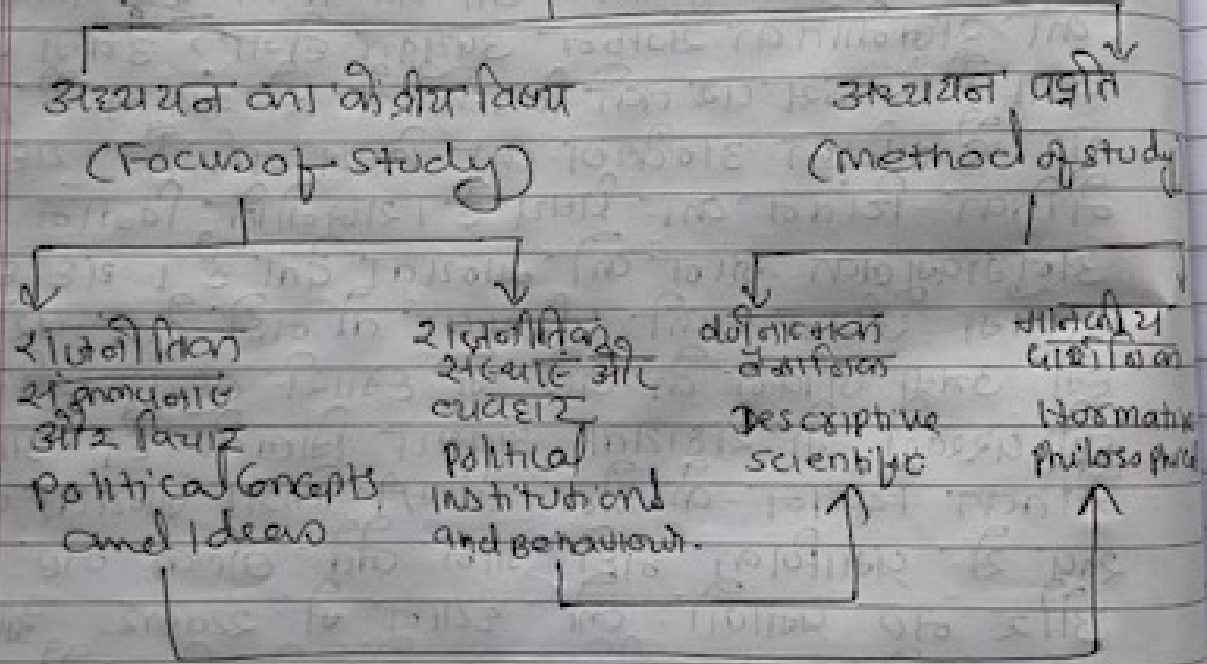 अध्ययन का केंद्रीय विषय
(Focus of study)
अध्ययन पद्धति
(Method of study)
राजनीतिक
संकल्पनाएं
और विचार
Political Concepts
and Ideas
राजनीतिक
संस्थाएं और
व्यवहार
Political
Institutions
and Behaviour.
वर्णनात्मक
वैज्ञानिक
Descriptive
scientific
मानकीय
दार्शनिक
Normative
Philosophical